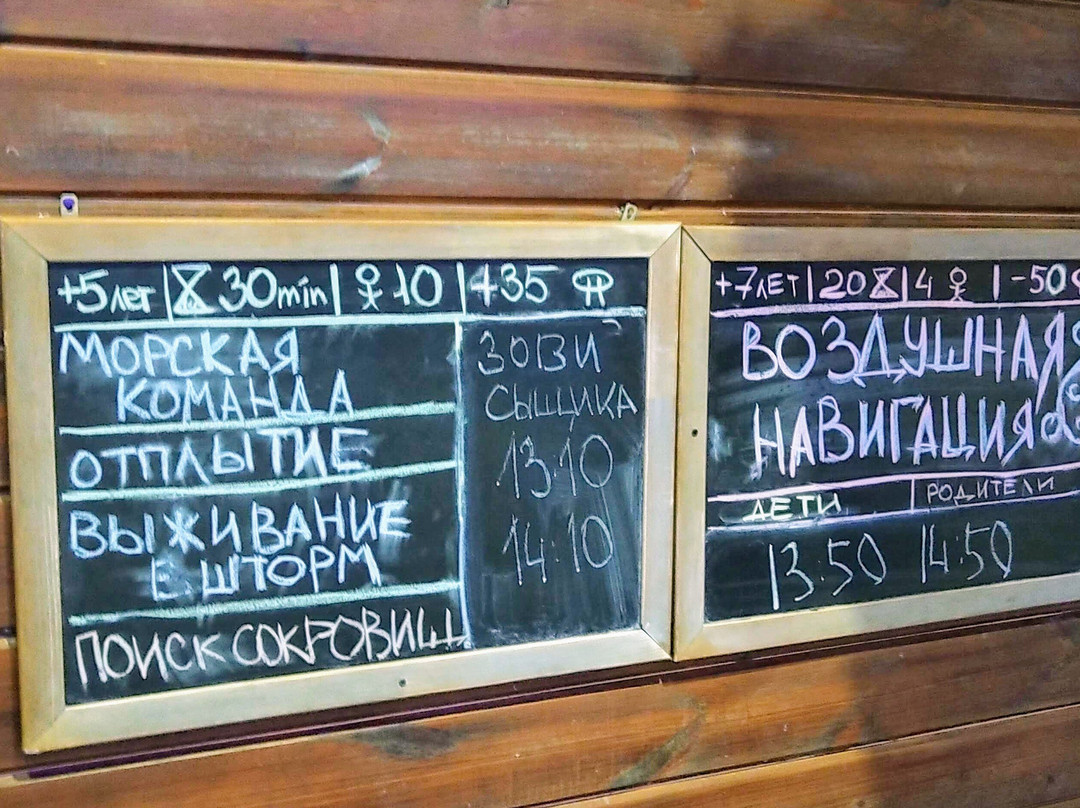 +5 лет 30 min 10 +35
МОРСКАЯ
КОМАНДА
ОТПЛЫТИЕ
ВЫЖИВАНИЕ
В ШТОРМ
ПОИСК СОКРОВИЩ
ЗОВИ
СЫЩИКА
13:10
14:10
+7 ЛЕТ 20 4 -50
ВОЗДУШНАЯ
НАВИГАЦИЯ
ДЕТИ РОДИТЕЛИ
13:50 14:50